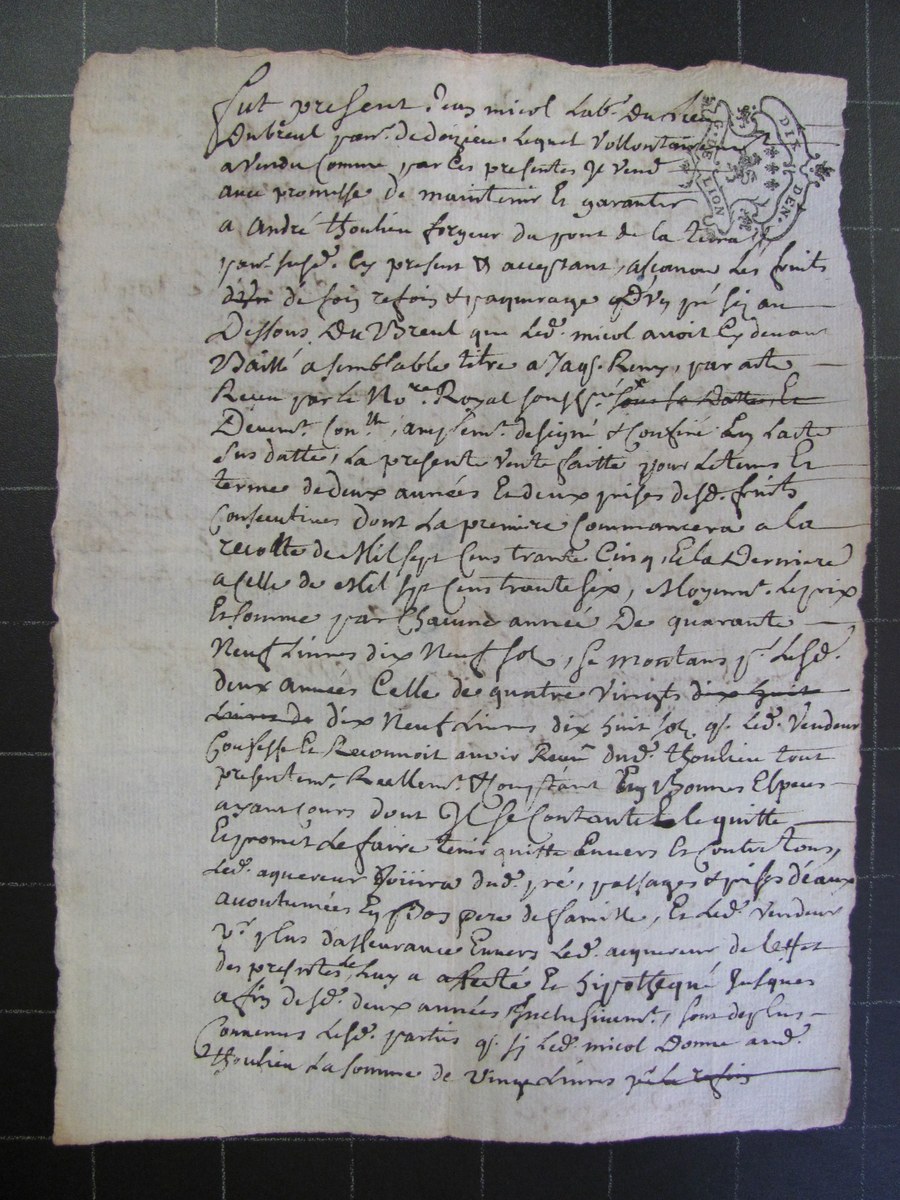 fut present Jean micol Labr. Du Lieu
Dubreul parr. de doizieu Lequel Vollontairement
a Vendu Comme par Ces presentes Je Vend
avec promesse de maintenir Et garantir
a André thoulieu forgeur du pont de la terra
parr. susd. Cy present & acceptant, ascavoir Les fruits
de foin refoin & paquerage D'Un pré sis au
Dessous Du Breul que Led. micol avoit Cy devant
Baillé a semblable titre a Jaqs. Remy, par acte
Receu par le Nore. Royal soussigné sous sa Datte Et
Deuemt. Conlle, amplemt. designé & Confiné En Lacte
sus datté, La presente Vente faitte pour Le tems Et
terme de deux années Et deux prises desd. fruits
Consecutives dont La premiere Commancera a la
recolte de Mil sept Cens trante Cinq, Et la Derniere
a Celle de Mil sept Cens trante six, Moyent. Le prix
Et somme par Chacune année De quarante
Neuf Livres dix Neuf sols, se montans pr. Lesd.
deux années Celle de quatre Vingts dix huit
Livres de dix Neuf Livres dix huit sols qe. Led. Vendeur
Confesse Et Reconnoit avoir Receu dud. thoulieu tout
presentemt. Reellemt. & Comptant En bonnes Especes
ayant Cours dont Il se Contante Et le quitte
Et promet Le faire tenir quitte Envers Et Contre tous,
Led. aquereur Jouira dud. pré, passages & prises d'eaux
acoutumées En bon pere de famille, Et Led. Vendeur
pr. plus dasseurance Envers Led. acquereur de leffet
des presentes Luy a affecté Et hipothequé Jusques
a fin desd. deux années Inclusivemt., sont de plus
Convenus Lesd. parties qe. si Led. micol Donne aud.
thoulieu La somme de Vingt Livres pr. la refoin
DIX
DEN.
LION